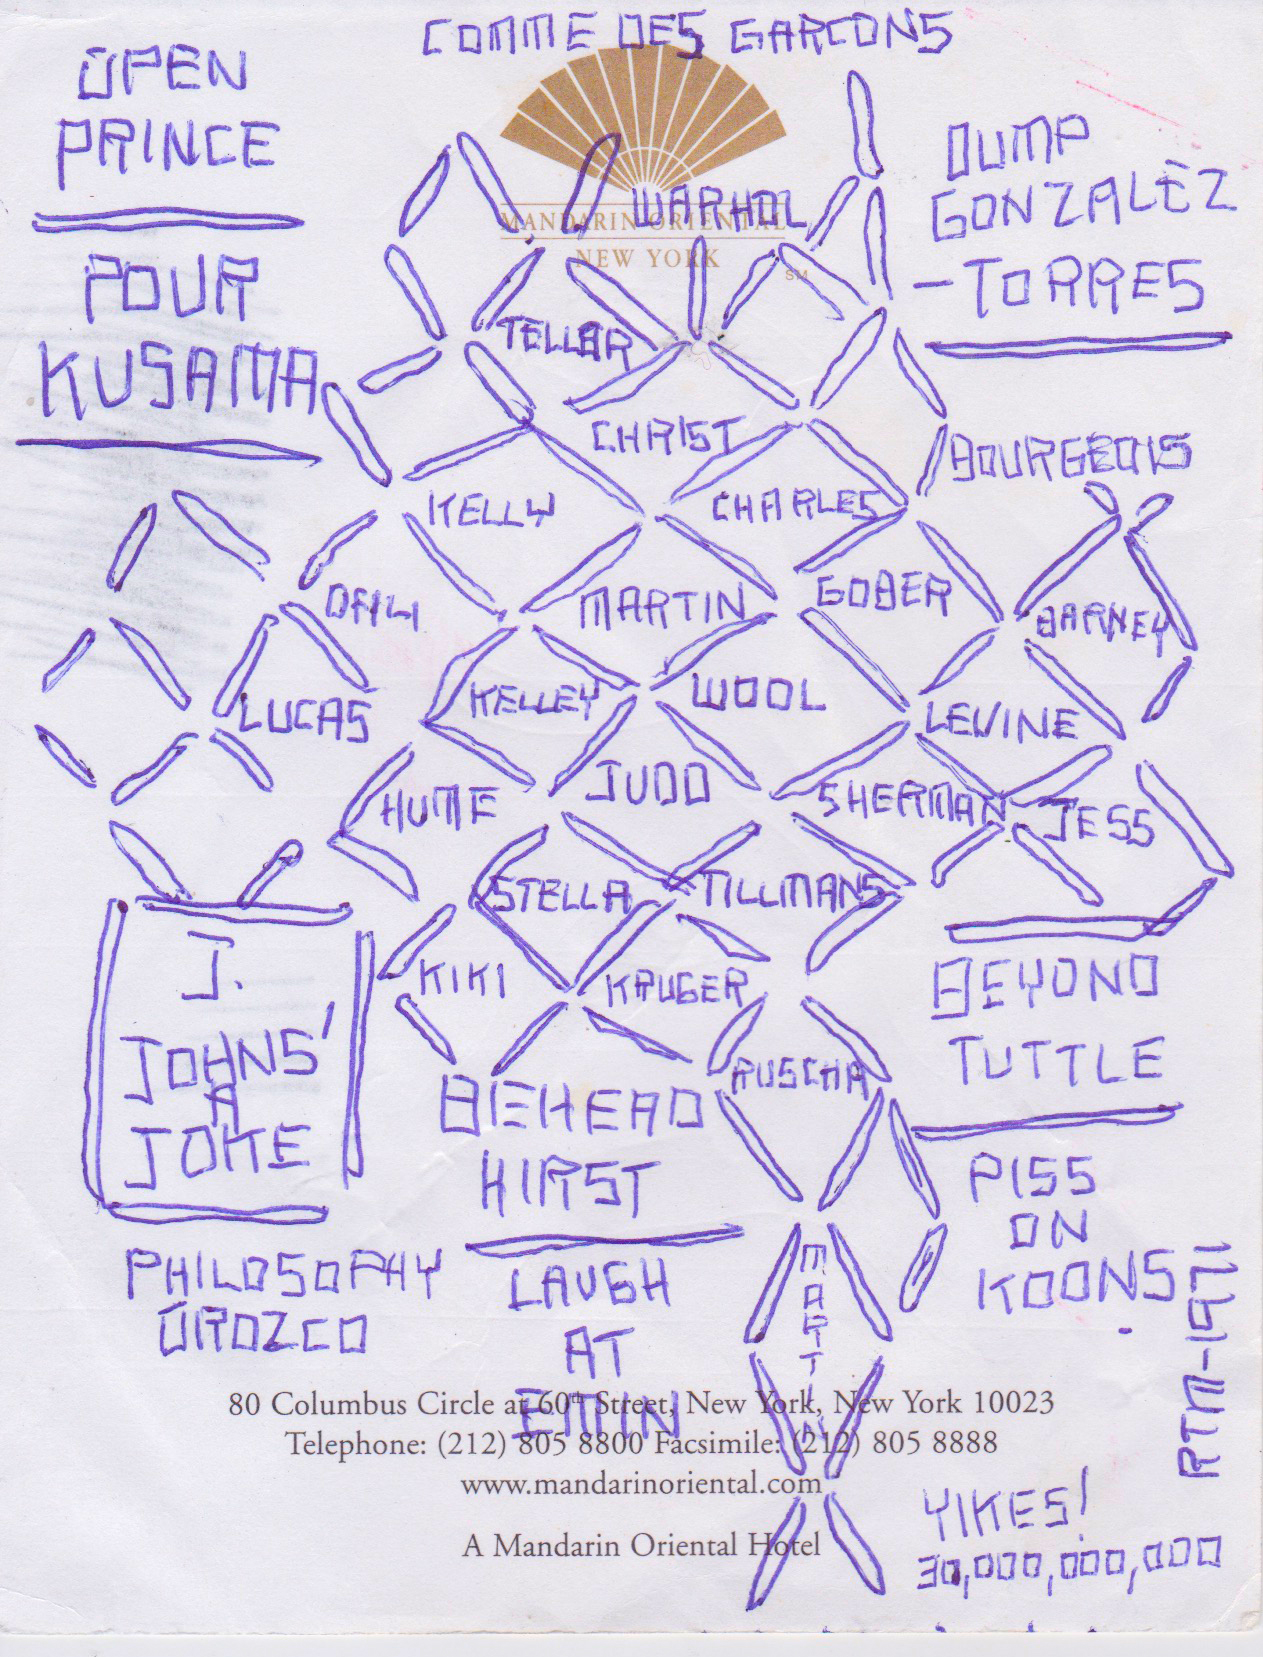 COMME DES GARCONS
OPEN
PRINCE
POUR
KUSAMA
MANDARIN ORIENTAL
NEW YORK
SM
WARHOL
DUMP
GONZALÈZ
-TORRES
TELLER
CHRIST
BOURGEOIS
KELLY
CHARLES
OFILI
MARTIN
GOBER
BARNEY
LUCAS
KELLEY
WOOL
LEVINE
HUME
JUDD
SHERMAN
JESS
STELLA
TILLMANS
KIKI
KRUGER
RUSCHA
J.
JOHNS'
A
JOKE
BEYOND
TUTTLE
BEHEAD
HIRST
PISS
ON
KOONS
PHILOSOPHY
OROZCO
LAUGH
AT
EMIN
MARTIN
RTM-1971
80 Columbus Circle at 60th Street, New York, New York 10023
Telephone: (212) 805 8800 Facsimile: (212) 805 8888
www.mandarinoriental.com
A Mandarin Oriental Hotel
YIKES!
30,000,000,000